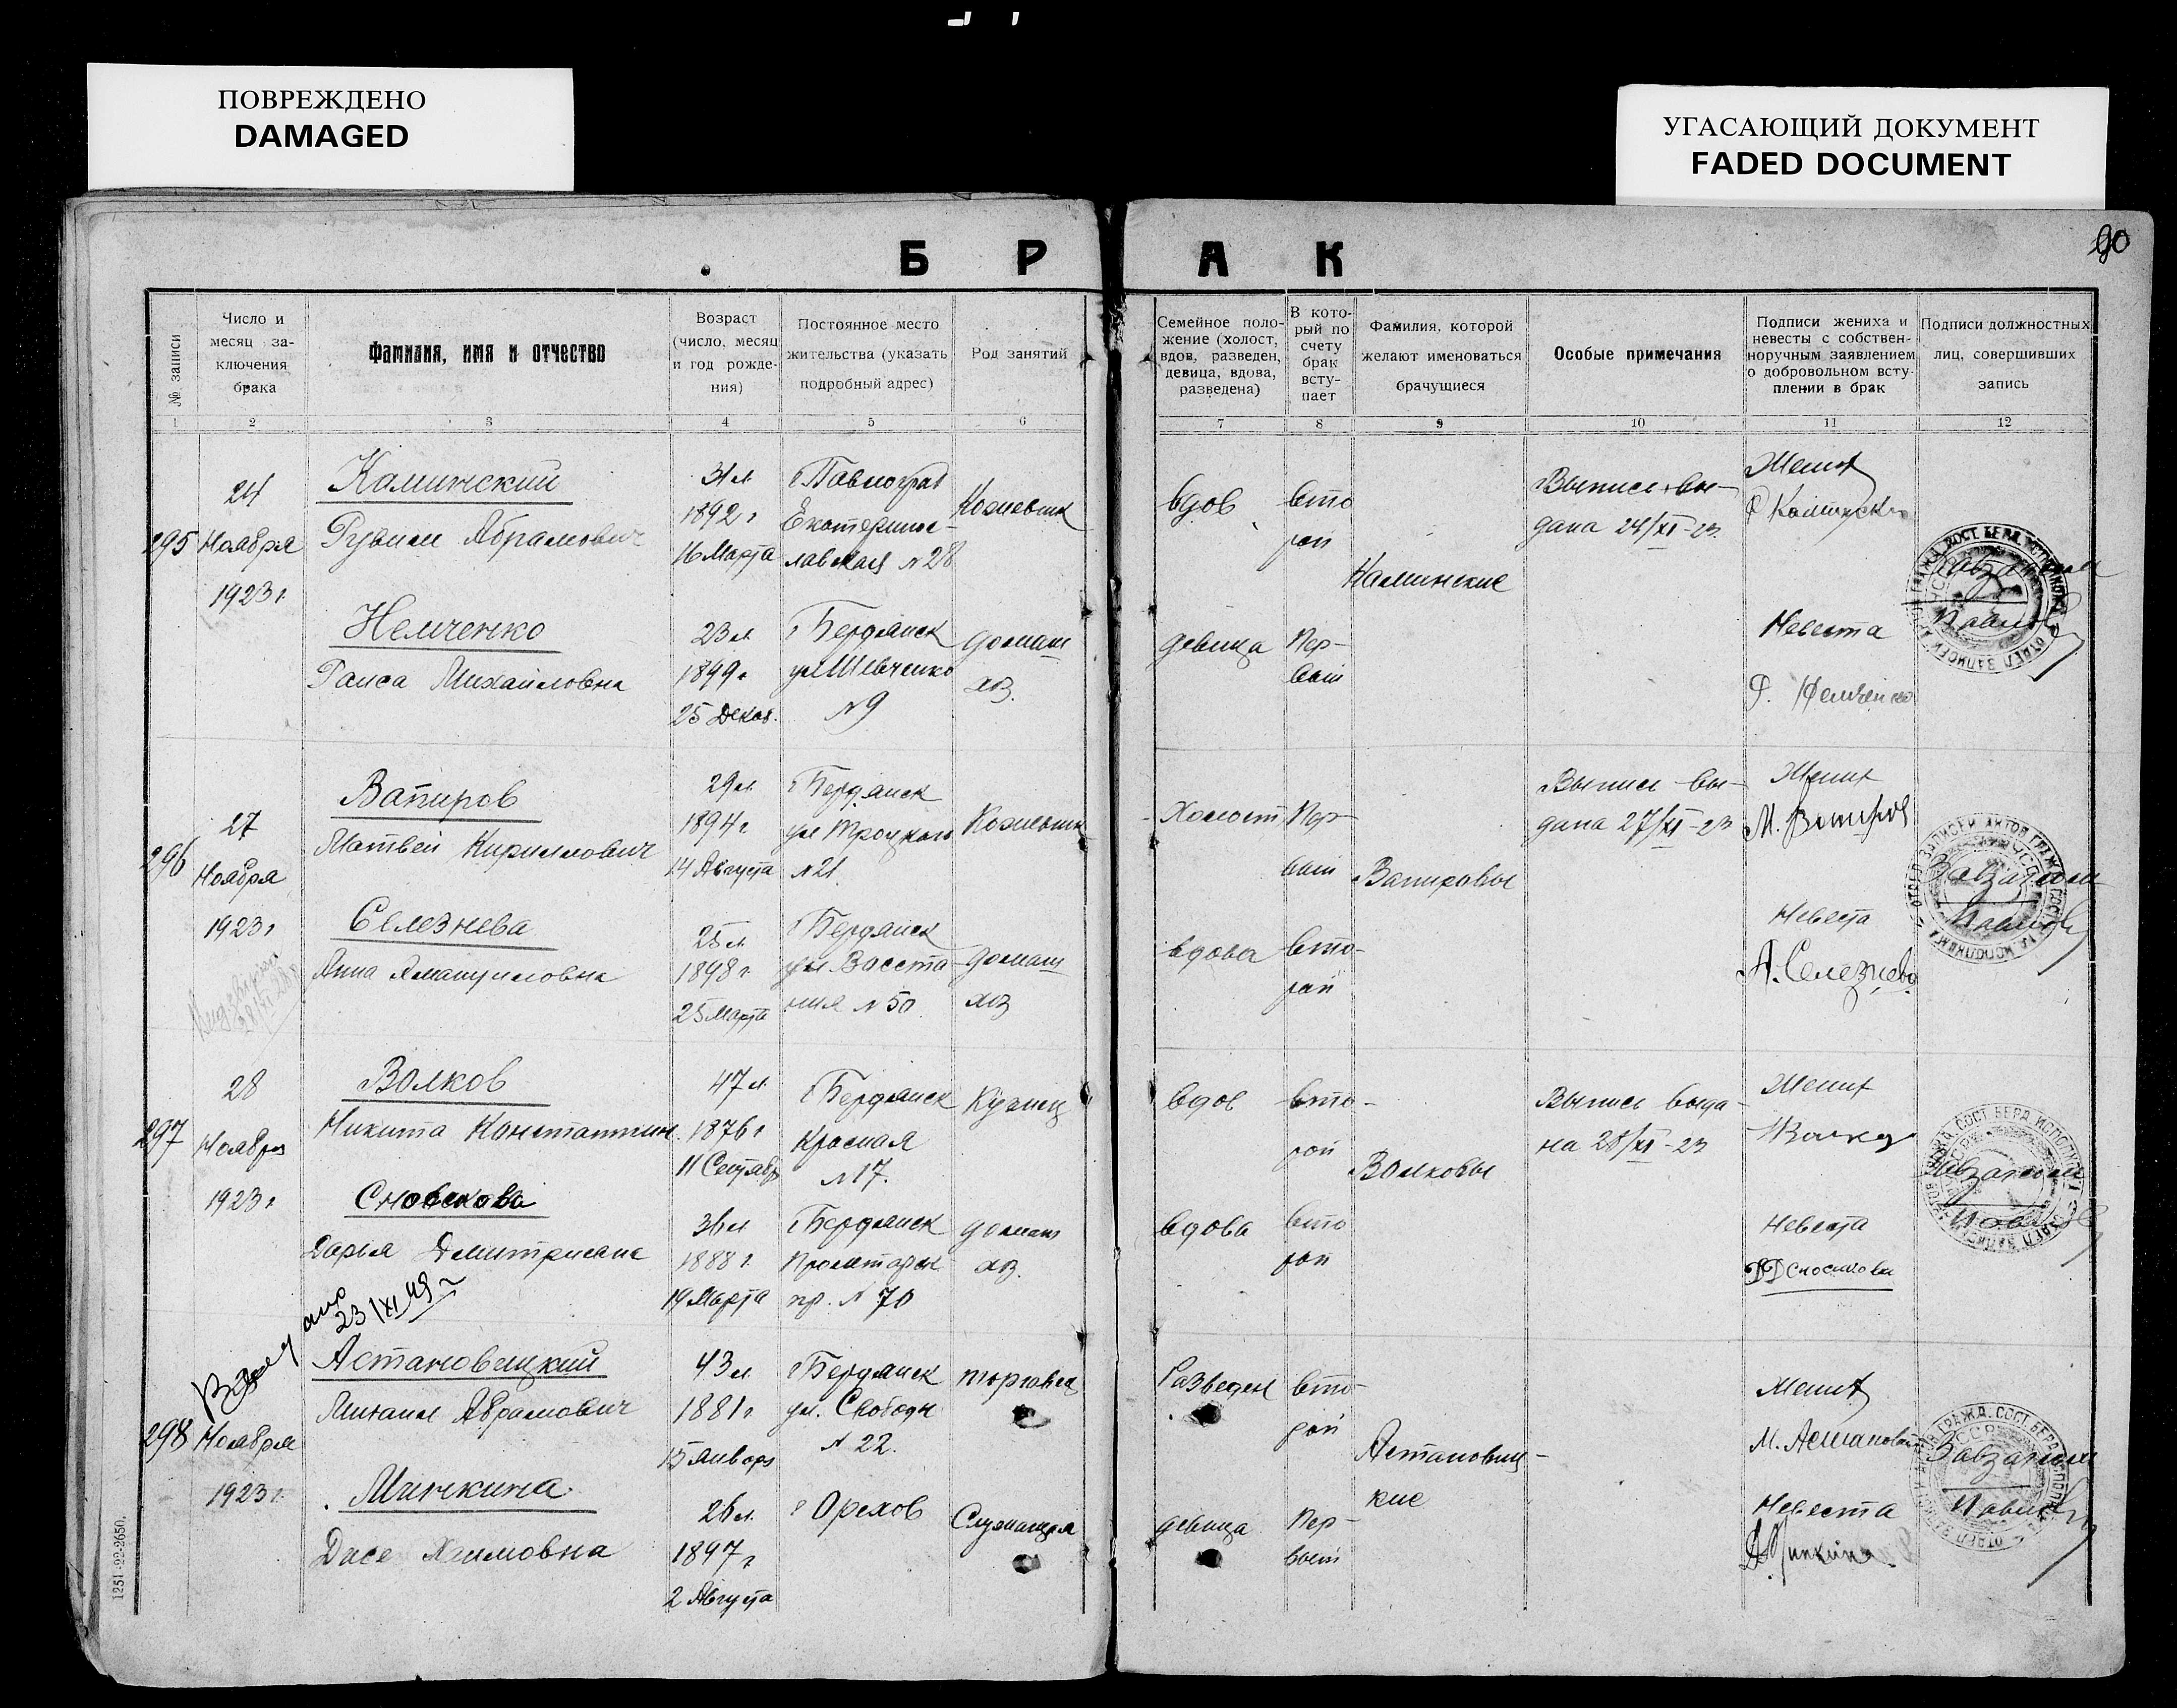 ПОВРЕЖДЕНО
DAMAGED
УГАСАЮЩИЙ ДОКУМЕНТ
FADED DOCUMENT
90
Б Р А К
№ записи
Число и месяц заключения брака
Фамилия, имя и отчество
Возраст (число, месяц и год рождения)
Постоянное место жительства (указать подробный адрес)
Род занятий
Семейное положение (холост, вдов, разведен, девица, вдова, разведена)
В который по счету брак вступает
Фамилия, которой желают именоваться брачущиеся
Особые примечания
Подписи жениха и невесты с собственноручным заявлением о добровольном вступлении в брак
Подписи должностных лиц, совершивших запись
1 2 3 4 5 6 7 8 9 10 11 12
295
24
Ноября
1923 г.
Каминский
Рувим Абрамович
31 л.
1892 г
16 Марта
г Павлоград
Екатерино-
лавская № 28
Кожевник
вдов
вто
рой
Каминские
Выпись вы-
дана 24/XI-23.
Жених
Немченко
Раиса Михайловна
23 л.
1899 г.
25 Декаб.
г Бердянск
ул Шевченко
№ 9
домаш
хоз.
девица
Пер-
вый
Невеста
Р. Немченко
296
27
Ноября
1923 г
Вапиров
Матвей Кириллович
29 л.
1894 г.
14 Августа
г Бердянск
ул Троцкого
№ 21.
Кожевник
Холост
Пер-
вый
Вапировы
Выпись вы-
дана 27/XI-23
Жених
М. Вапиров
Завзагсом
Селезнева
Анна
25 л.
1898 г.
25 Марта
г Бердянск
ул Восста-
ния № 50
домаш
хоз
вдова
вто-
рой
Невеста
А. Селезнева
297
28
Ноября
1923 г.
Волков
Никита Константин.
47 л.
1876 г
11 Сентябр
г Бердянск
Красная
№ 17.
Кузнец
вдов
вто-
рой
Волковы
Выпись выда-
на 28/XI-23
Жених
Завзагсом
Дарья Дмитриевна
36 л
1888 г.
19 Марта
г Бердянск
Пролетарск
пр. № 70
домаш
хоз.
вдова
вто
рой
Невеста
23/XI 49 г
298
Ноября
1923 г.
Астановицкий
Михаил Абрамович
43 л.
1881 г.
15 Января
г Бердянск
ул. Свободы
№ 22.
торговец
Разведен
вто-
рой
Астановиц-
кие
Жених
Завзагсом
Минкина
Хаимовна
26 л.
1897 г
2 Августа
г Орехов
Служащая
девица
Пер-
вый
Невеста
1251-22-2650.